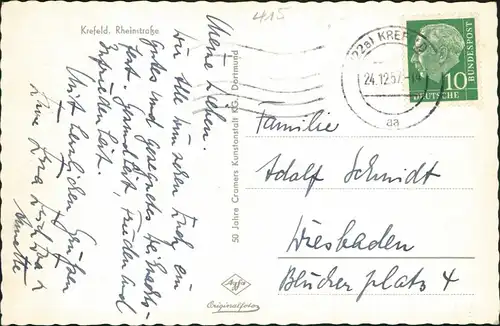 415
Krefeld. Rheinstraße
Meine Lieben.
Wir alle wünschen Euch ein
Gutes und gesegnetes Weihnachts-
fest. Gesundheit, Frieden und
Zufriedenheit.
Mit herzlichen Grüßen
50 Jahre Cramers Kunstanstalt KG., Dortmund
Agfa
Originalfoto
(22a) KREFELD
24.12.57.-14
aa
10
DEUTSCHE
BUNDESPOST
Familie
Adolf Schmidt
Wiesbaden
Blücherplatz 4